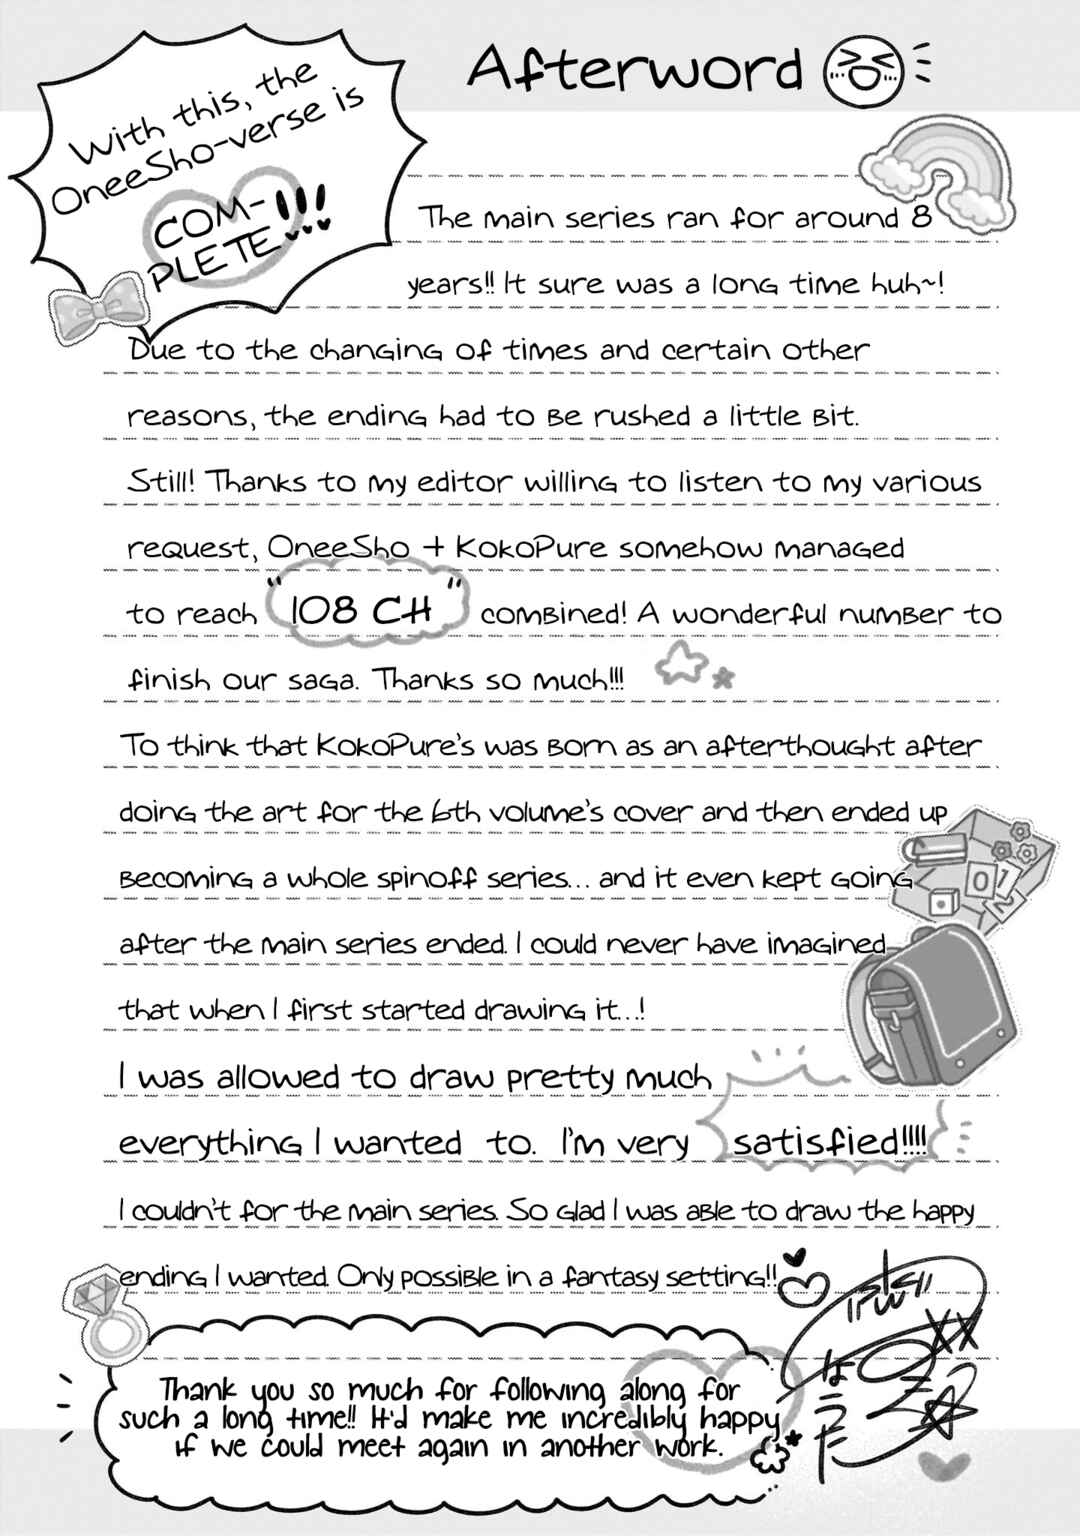 Afterword
With this, the
OneeSho-verse is
COM-
PLETE!!!
The main series ran for around 8
years!! It sure was a long time huh~!
Due to the changing of times and certain other
reasons, the ending had to be rushed a little bit.
Still! Thanks to my editor willing to listen to my various
request, OneeSho + KokoPure somehow managed
to reach "108 CH" combined! A wonderful number to
finish our saga. Thanks so much!!!
To think that KokoPure's was born as an afterthought after
doing the art for the 6th volume's cover and then ended up
becoming a whole spinoff series... and it even kept going
after the main series ended. I could never have imagined
that when I first started drawing it...!
I was allowed to draw pretty much
everything I wanted to. I'm very satisfied!!!!
I couldn't for the main series. So glad I was able to draw the happy
ending I wanted. Only possible in a fantasy setting!!
Thank you so much for following along for
such a long time!! It'd make me incredibly happy
if we could meet again in another work.
012